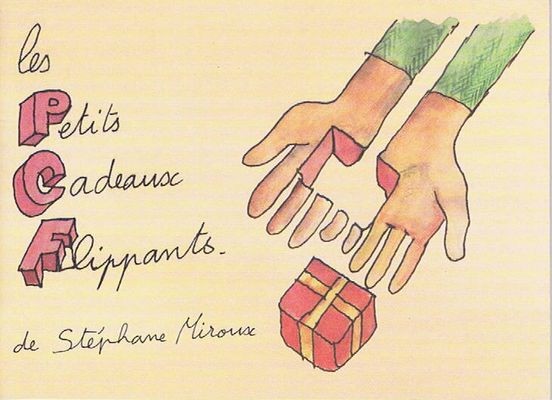 les
Petits
Cadeaux
Flippants.
de Stéphane Miroux